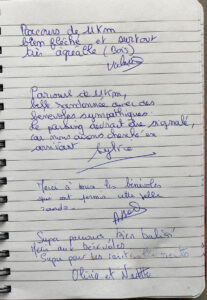 Parcours de 11km
bien fléché et surtout
très agréable (bois)
Parcours de 11km,
belle randonnée avec des
bénévoles sympathiques
le parking devrait être signalé,
car nous avons cherché en
arrivant
Sylvie
Merci à tous les bénévoles
qui ont formé cette belle
rando.
Super parcours, bien balisé!
Merci aux bénévoles
Super pour les
Olivia et